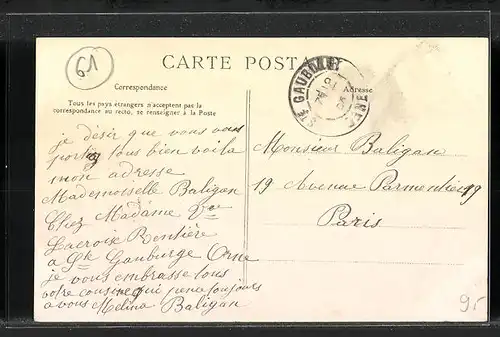 61
CARTE POSTALE
STE GAUBURGE
ORNE
Correspondance
Adresse
Tous les pays étrangers n'acceptent pas la
correspondance au recto, se renseigner à la Poste
je désir que vous vous
portez tous bien voila
mon adresse
Mademoiselle Baligan
Chez Madame Vve
Lacroix Rentière
a Ste Gauburge Orne
je vous embrasse tous
votre cousine qui pense toujours
a vous Melina Baligan
Monsieur Baligan
19 Avenue Parmentier 19
Paris
95